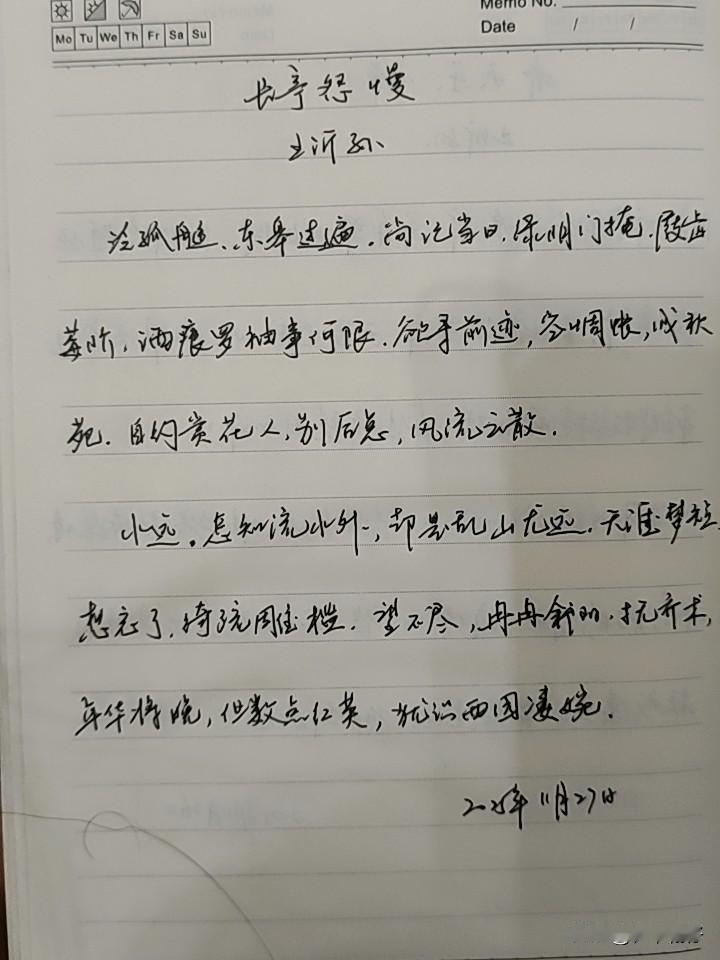 Memo No.
Mo Tu We Th Fr Sa Su
Date / /
长亭怨慢
王沂孙
泛孤艇、东皋过遍。尚记当日,绿阴门掩。屐齿
莓阶,酒痕罗袖事何限。欲寻前迹,空惆怅,成秋
苑。自约赏花人,别后总,风流云散。
水远。怎知流水外,却是乱山尤远。天涯梦短,
想忘了,绮疏雕槛。望不尽,冉冉斜阳,抚乔木,
年华将晚,但数点红英,犹识西园凄婉。
11月27日